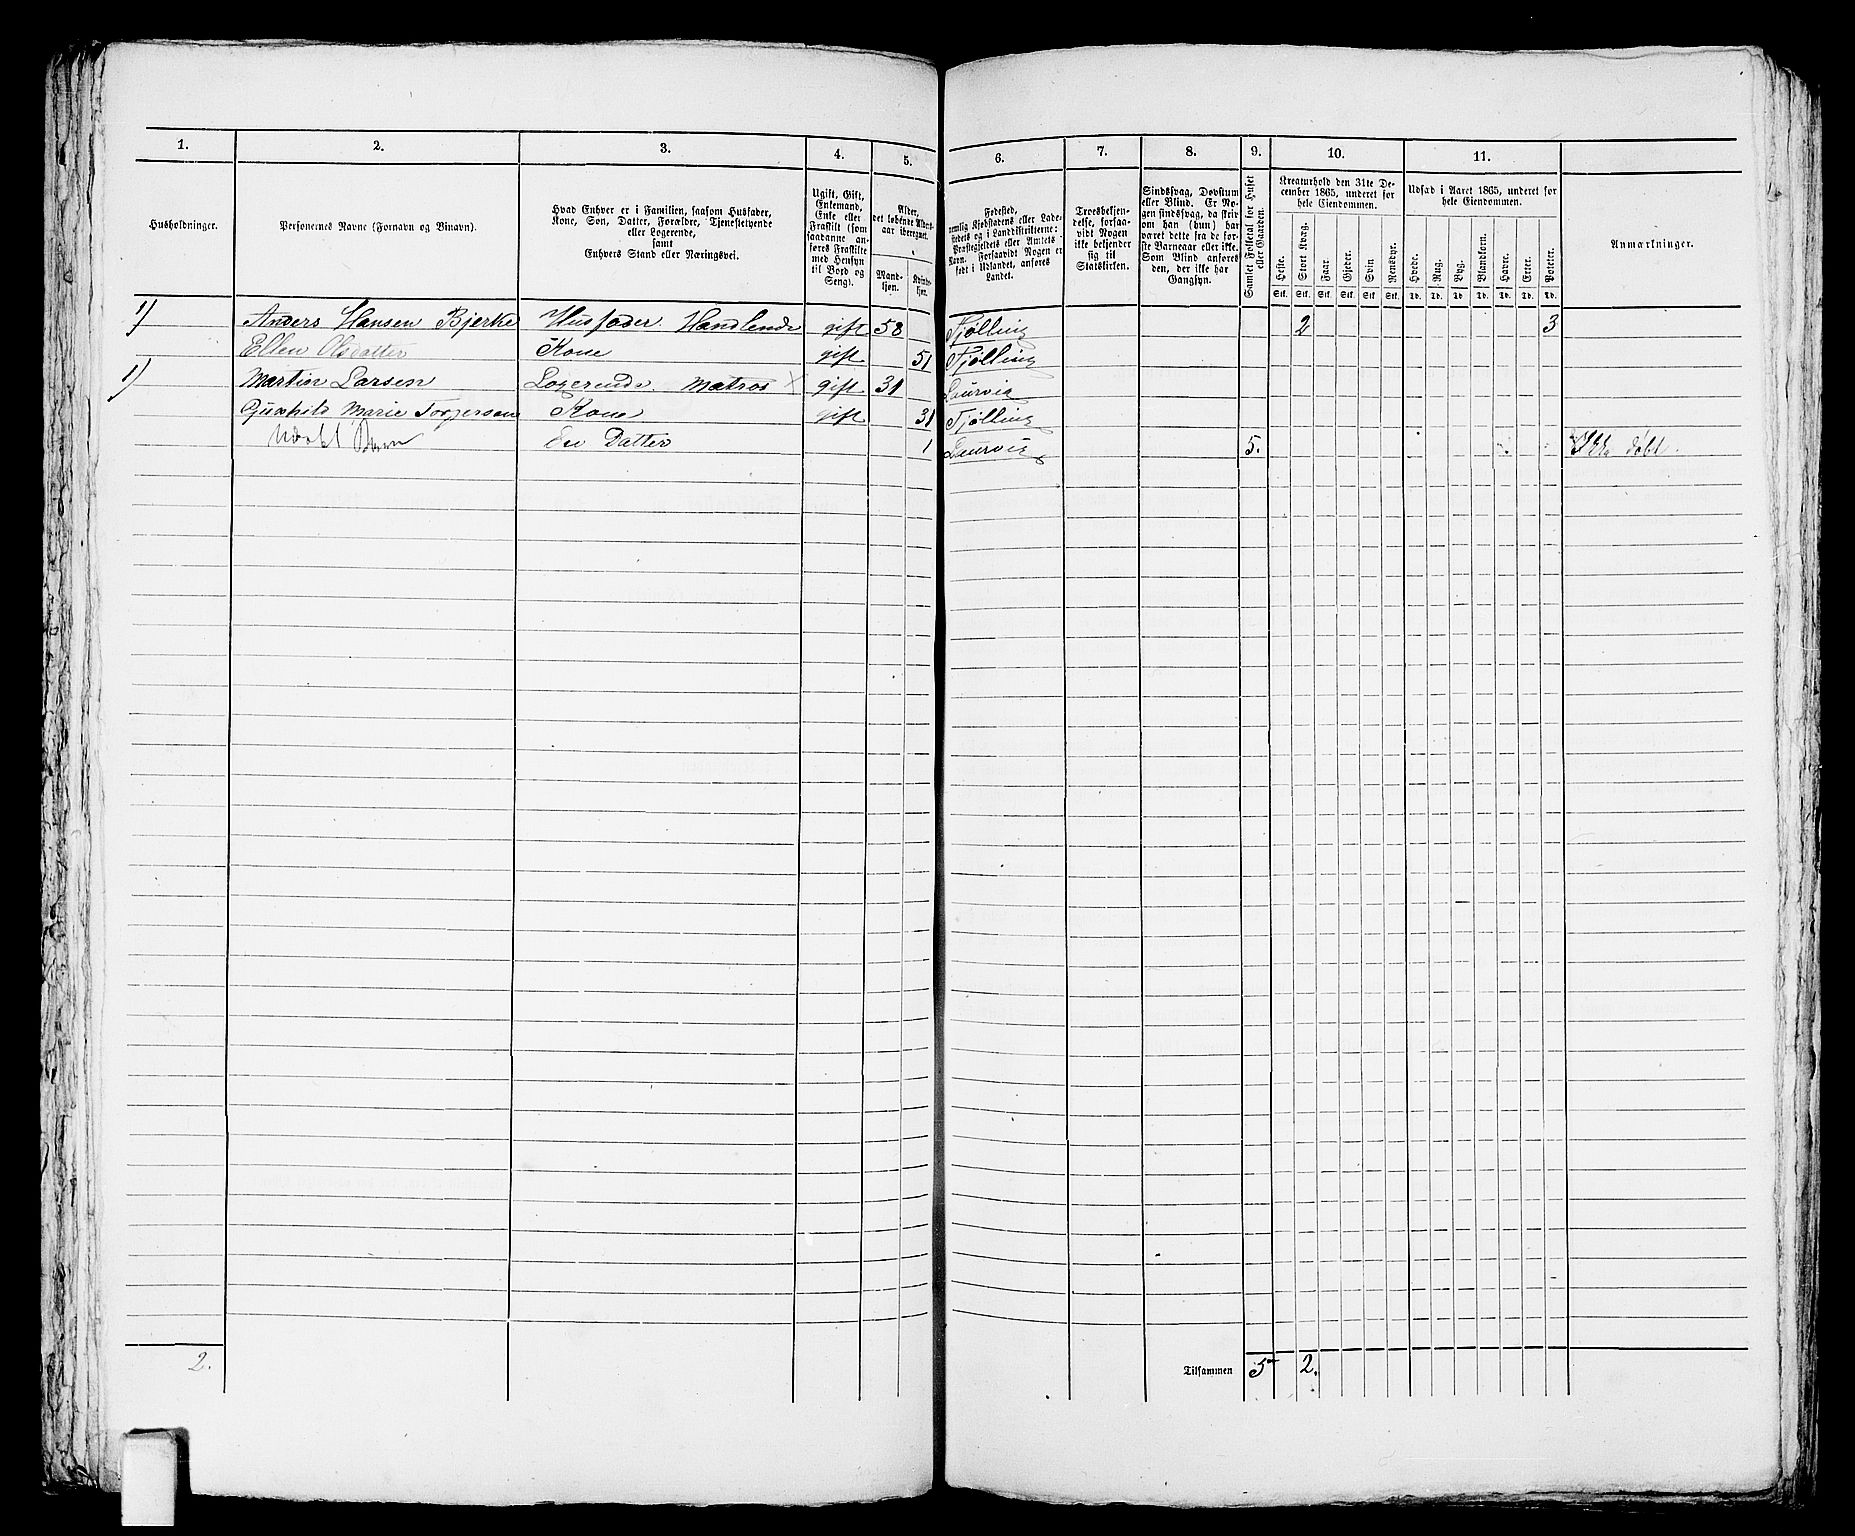 1. 2. 3. 4. 5. 6. 7. 8. 9. 10. 11.
Husholdninger.
Personernes Navne (Fornavn og Binavn).
Hvad Enhver er i Familien, saasom Husfader,
Kone, Søn, Datter, Forældre, Tjenestetyende
eller Logerende,
samt
Enhvers Stand eller Næringsvei.
Ugift, Gift,
Enkemand,
Enke eller
Fraskilt (som
saadanne an-
føres Fraskilte
med Hensyn
til Bord og
Seng).
Alder,
det løbende Alders-
aar iberegnet.
Mand-
kjøn.
Kvinde-
kjøn.
Fødested,
nemlig Kjøbstadens eller Lade-
stedets og i Landdistrikterne:
Præstegjeldets eller Amtets
Navn. Forsaavidt Nogen er
født i Udlandet, anføres
Landet.
Troesbekjen-
delse, forsaa-
vidt Nogen
ikke bekjender
sig til
Statskirken.
Sindssvag, Døvstum
eller Blind. Er No-
gen sindssvag, da skriv
om han (hun) har
været dette fra de før-
ste Barneaar eller ikke.
Som Blind anføres
den, der ikke har
Gangsyn.
Samlet Folketal for Huset
eller Gaarden.
Kreaturhold den 31te De-
cember 1865, underet for
hele Eiendommen.
Heste. Stort Kvæg. Faar. Gjeder. Svin Rensdyr.
Stk. Stk. Stk. Stk. Stk. Stk.
Udsæd i Aaret 1865, underet for
hele Eiendommen.
Hvede. Rug. Byg. Blandkorn. Havre. Erter. Poteter.
Td. Td. Td. Td. Td. Td. Td.
Anmærkninger.
1) Anders Hansen Bjerke Husfader Handlende gift 58 Tjølling 2 3
Ellen Olsdatter Kone gift 51 Tjølling
1) Martin Larsen Logerende. Matros gift 31 Laurvig
Gunhild Marie Torjersen Kone gift 31 Tjølling
Udøbt Barn En Datter 1 Laurvig 5. Ikke døbt.
2. Tilsammen 5 2.